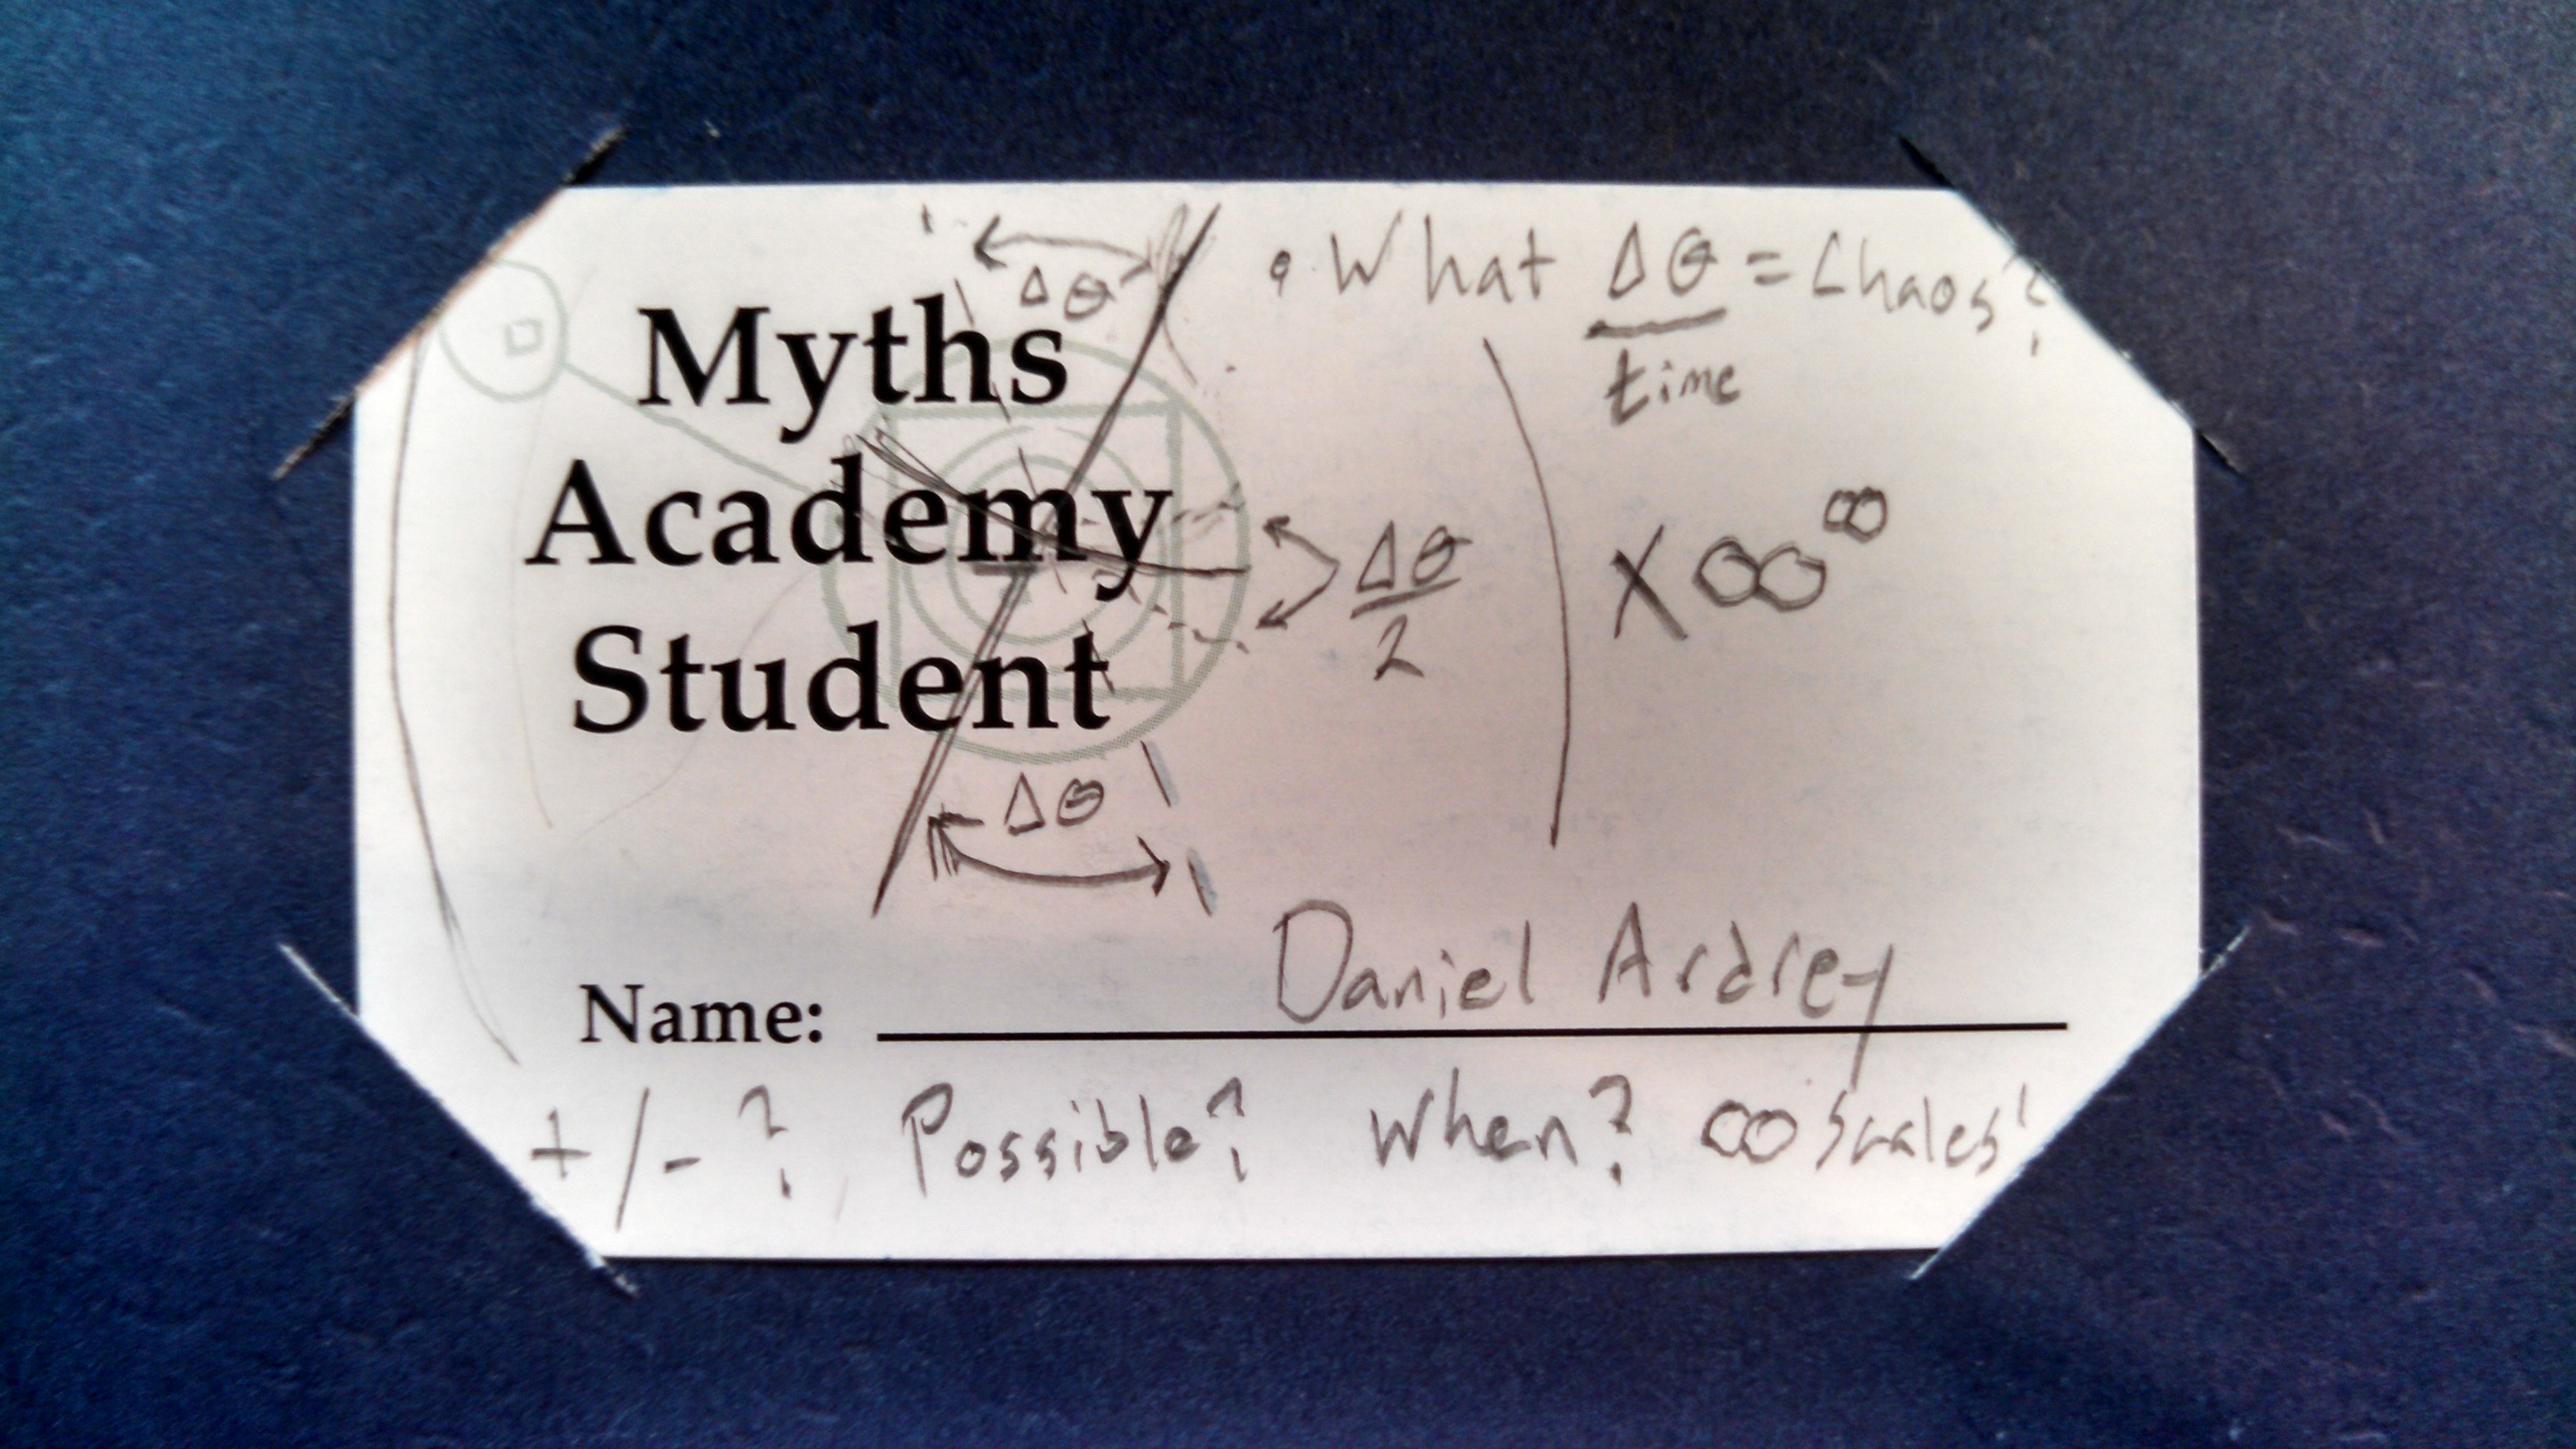 Δθ
• What Δθ = Chaos?
time
Myths
Academy
Student
Δθ
2
X ∞^∞
Δθ
Name: Daniel Ardrey
+/- ? Possible? When? ∞ Scales!